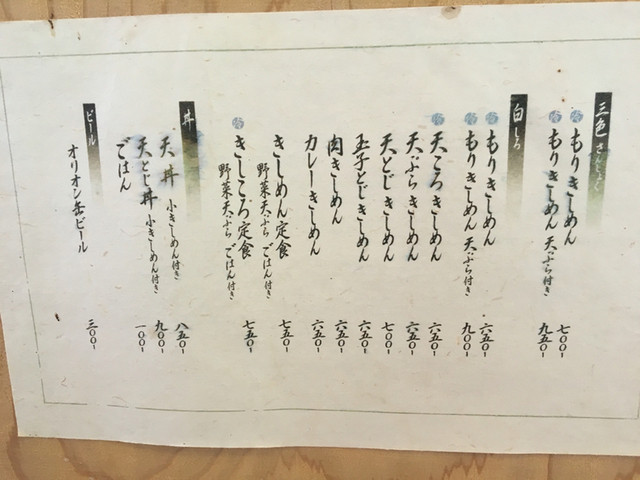 三色 さんしょく
冷 もりきしめん 七〇〇-
冷 もりきしめん 天ぷら付き 九五〇-
白 しろ
冷 もりきしめん 六五〇-
冷 もりきしめん 天ぷら付き 九〇〇-
冷 天ころきしめん 六五〇-
天ぷらきしめん 六五〇-
天とじきしめん 七〇〇-
玉子とじきしめん 六五〇-
肉きしめん 六五〇-
カレーきしめん 六五〇-
きしめん定食 七五〇-
野菜天ぷら ごはん付き
冷 きしころ定食 七五〇-
野菜天ぷら ごはん付き
丼
天丼 小きしめん付き 八五〇-
天とじ丼 小きしめん付き 九〇〇-
ごはん 一〇〇-
ビール
オリオン缶ビール 三〇〇-